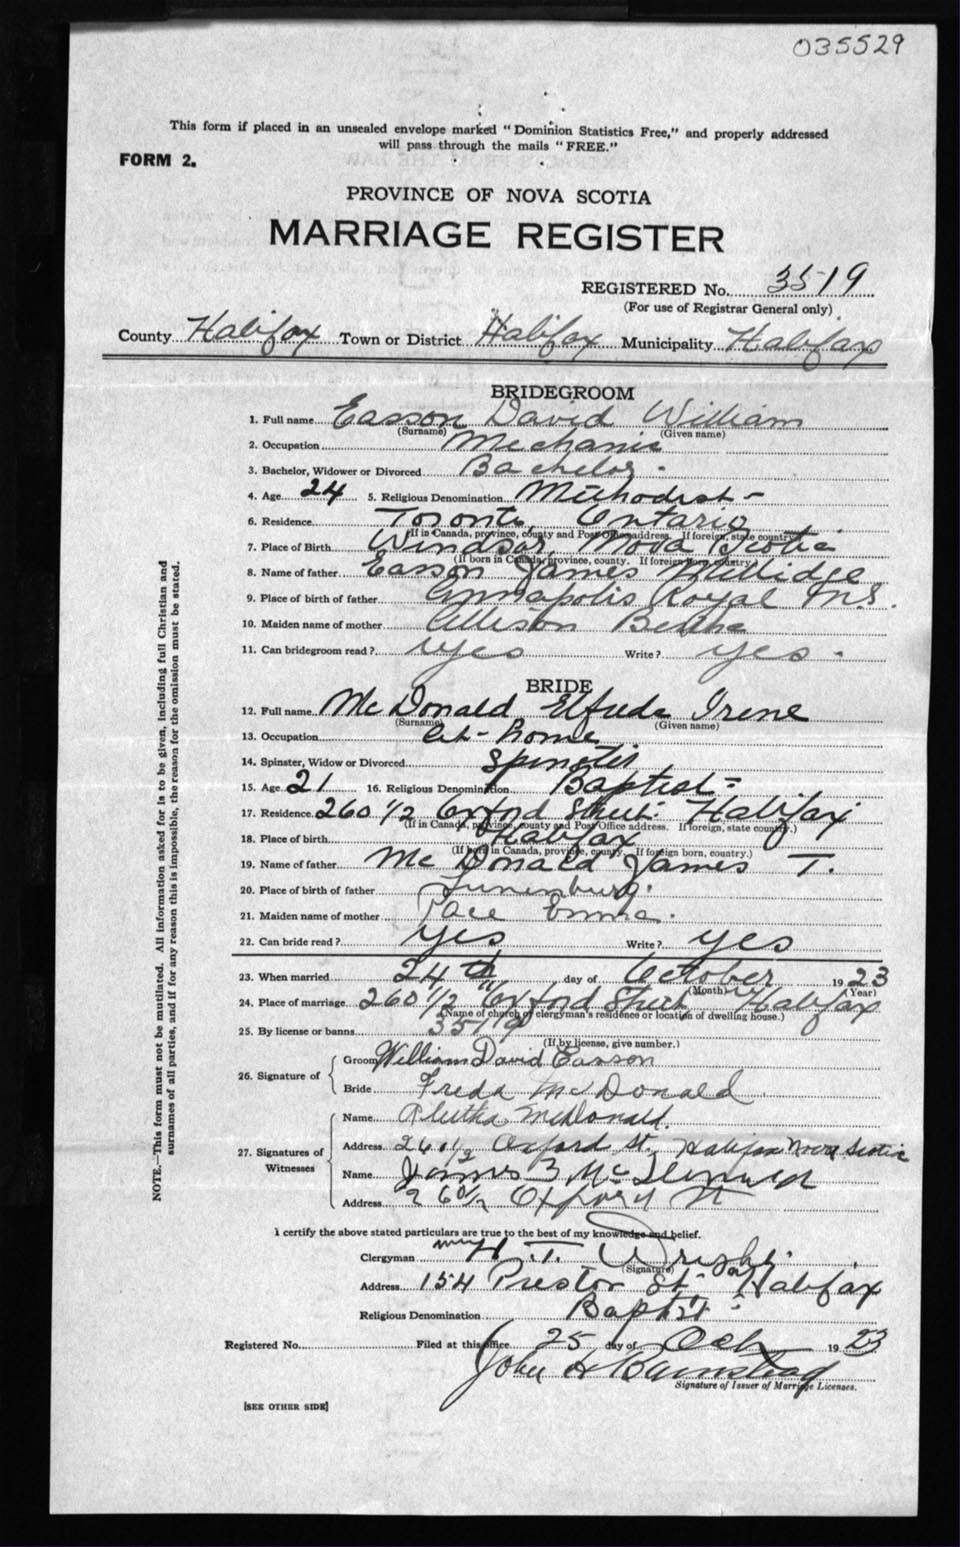 035529
This form if placed in an unsealed envelope marked "Dominion Statistics Free," and properly addressed
will pass through the mails "FREE."
FORM 2.
PROVINCE OF NOVA SCOTIA
MARRIAGE REGISTER
REGISTERED No. 3519
(For use of Registrar General only)
County Halifax Town or District Halifax Municipality Halifax
BRIDEGROOM
1. Full name Easson David William
(Surname) (Given name)
2. Occupation Mechanic
3. Bachelor, Widower or Divorced Bachelor.
4. Age 24 5. Religious Denomination Methodist-
6. Residence Toronto, Ontario
(If in Canada, province, county and Post Office address. If foreign, state country.)
7. Place of Birth Windsor, Nova Scotia
(If born in Canada, province, county. If foreign born, country.)
8. Name of father Easson James Millidge
9. Place of birth of father Annapolis Royal N.S.
10. Maiden name of mother Allison
11. Can bridegroom read? Yes Write? yes-
BRIDE
12. Full name Mc Donald Elfreda Irene
(Surname) (Given name)
13. Occupation At-home
14. Spinster, Widow or Divorced Spinster
15. Age 21 16. Religious Denomination Baptist-
17. Residence 260 1/2 Oxford Street Halifax
(If in Canada, province, county and Post Office address. If foreign, state country.)
18. Place of birth Halifax
(If born in Canada, province, county. If foreign born, country.)
19. Name of father Mc Donald James T.
20. Place of birth of father Lunenburg.
21. Maiden name of mother Pace Emma.
22. Can bride read? yes Write? yes
23. When married 24th day of October 1923
(Month) (Year)
24. Place of marriage 260 1/2 Oxford Street, Halifax
(Name of church or clergyman's residence or location of dwelling house.)
25. By license or banns 3519
(If by license, give number.)
26. Signature of
Groom William David Easson
Bride Freda McDonald
27. Signatures of Witnesses
Name McDonald.
Address 260 1/2 Oxford St, Halifax Nova Scotia
Name James
Address 260 1/2 Oxford St
I certify the above stated particulars are true to the best of my knowledge and belief.
Clergyman H. T. Wright
(Signature)
Address 154 Preston St- Halifax
Religious Denomination Baptist-
Registered No. Filed at this office 25 day of Oct 1923
John H Barnstead
Signature of Issuer of Marriage Licenses.
[SEE OTHER SIDE]
NOTE.—This form must not be mutilated. All information asked for is to be given, including full Christian and
surnames of all parties, and if for any reason this is impossible, the reason for the omission must be stated.